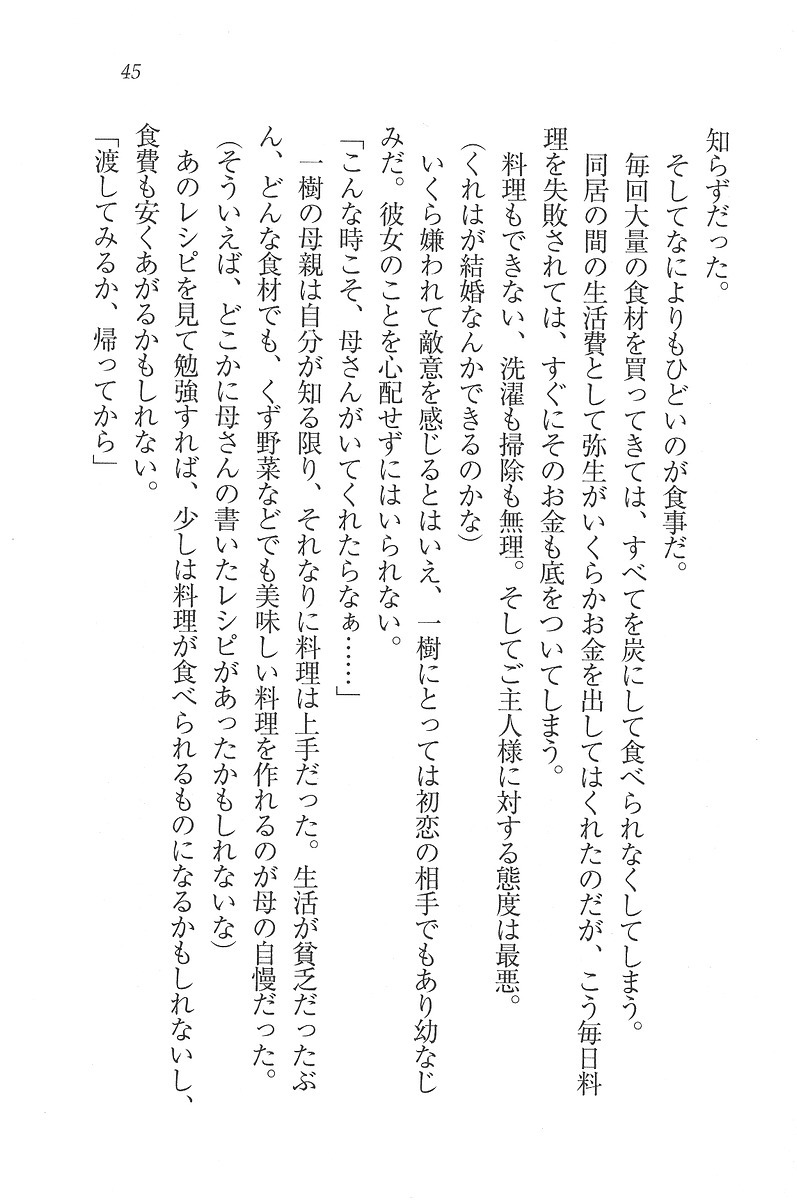 45
知らずだった。
そしてなによりもひどいのが食事だ。
毎回大量の食材を買ってきては、すべてを炭にして食べられなくしてしまう。
同居の間の生活費として弥生がいくらかお金を出してはくれたのだが、こう毎日料
理を失敗されては、すぐにそのお金も底をついてしまう。
料理もできない、洗濯も掃除も無理。そしてご主人様に対する態度は最悪。
（くれはが結婚なんかできるのかな）
いくら嫌われて敵意を感じるとはいえ、一樹にとっては初恋の相手でもあり幼なじ
みだ。彼女のことを心配せずにはいられない。
「こんな時こそ、母さんがいてくれたらなぁ……」
一樹の母親は自分が知る限り、それなりに料理は上手だった。生活が貧乏だったぶ
ん、どんな食材でも、くず野菜などでも美味しい料理を作れるのが母の自慢だった。
（そういえば、どこかに母さんの書いたレシピがあったかもしれないな）
あのレシピを見て勉強すれば、少しは料理が食べられるものになるかもしれないし、
食費も安くあがるかもしれない。
「渡してみるか、帰ってから」